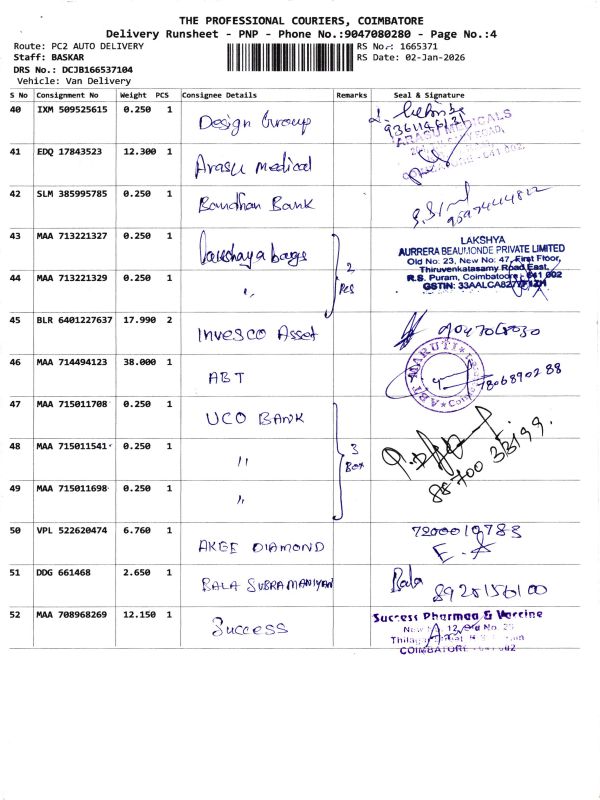 THE PROFESSIONAL COURIERS, COIMBATORE
Delivery Runsheet - PNP - Phone No.:9047080280 - Page No.:4
Route: PC2 AUTO DELIVERY RS No.: 1665371
Staff: BASKAR RS Date: 02-Jan-2026
DRS No.: DCJB166537104
Vehicle: Van Delivery
S No Consignment No Weight PCS Consignee Details Remarks Seal & Signature
40 IXM 509525615 0.250 1 Design Group
41 EDQ 17843523 12.300 1 Arasu Medical ARASU MEDICALS
42 SLM 385995785 0.250 1 Bandhan Bank
43 MAA 713221327 0.250 1 Lakshaya bags 2 Pcs
LAKSHYA
AURRERA BEAUMONDE PRIVATE LIMITED
Old No. 23, New No: 47, First Floor,
Thiruvenkatasamy Road East,
R.S. Puram, Coimbatore - 641 002
44 MAA 713221329 0.250 1 "
45 BLR 6401227637 17.990 2 Invesco Asset
46 MAA 714494123 38.000 1 ABT
47 MAA 715011708 0.250 1 UCO BANK
48 MAA 715011541 0.250 1 " 3 Box
49 MAA 715011698 0.250 1 "
50 VPL 522620474 6.760 1 AKGE DIAMOND
51 DDG 661468 2.650 1 BALA SUBRAMANIYAN Bala
52 MAA 708968269 12.150 1 Success Success Pharmaa & Vaccine